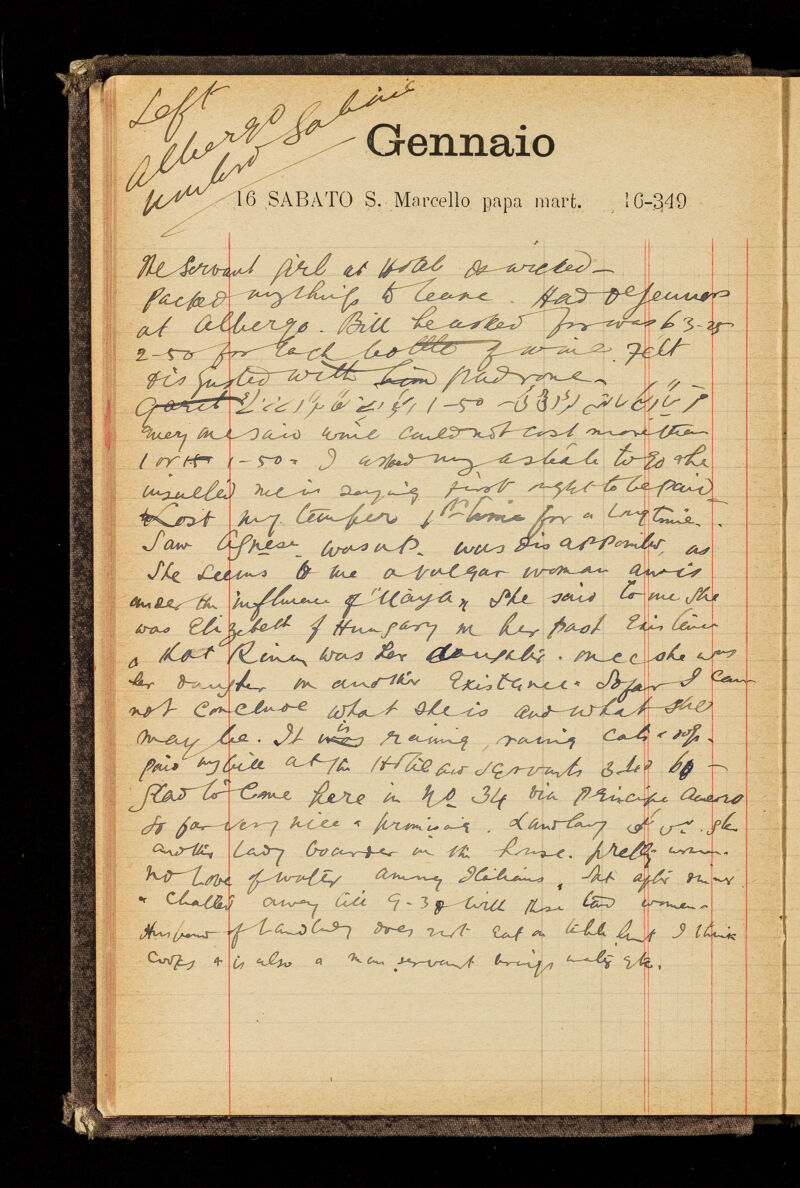 Left
Albergo Sabine
Umbro
Gennaio
16 SABATO S. Marcello papa mart. 16-349
The Servant girl at Hotel is wicked –
Packed my things to leave. Had dejeuner
at Albergo. Bill he asked for was 63-25
2-50 for each bottle of wine. Felt
disgusted with him padrone –
1-50
Every one said wine could not cost more than
1 or 15 1-50 = I asked my to go & he
insulted me in saying first right to be paid
Lost my temper 1st time for a long time.
Saw Agnese was up. was disappointed, as
She seems to me a vulgar woman and is
under the influence of "Maya" She said to me She
was Elizebeth of Hungary in her past Existence
& that was her daughter. once she was
her daughter in another Existence = So far I can
not conclude what she is and what she
may be. It was is raining, raining cats & dogs.
paid my bill at the Hotel and servants 3
glad to come here in No 34 Via Principe
So far very nice & promising. Landlady
another lady boarder in the house. pretty woman.
No Love of water among Italians. Sat after dinner
& chatted away till 9-30 with these two women –
Husband of Landlady does not eat on table but I think
Cooks & is also a man servant brings water etc.